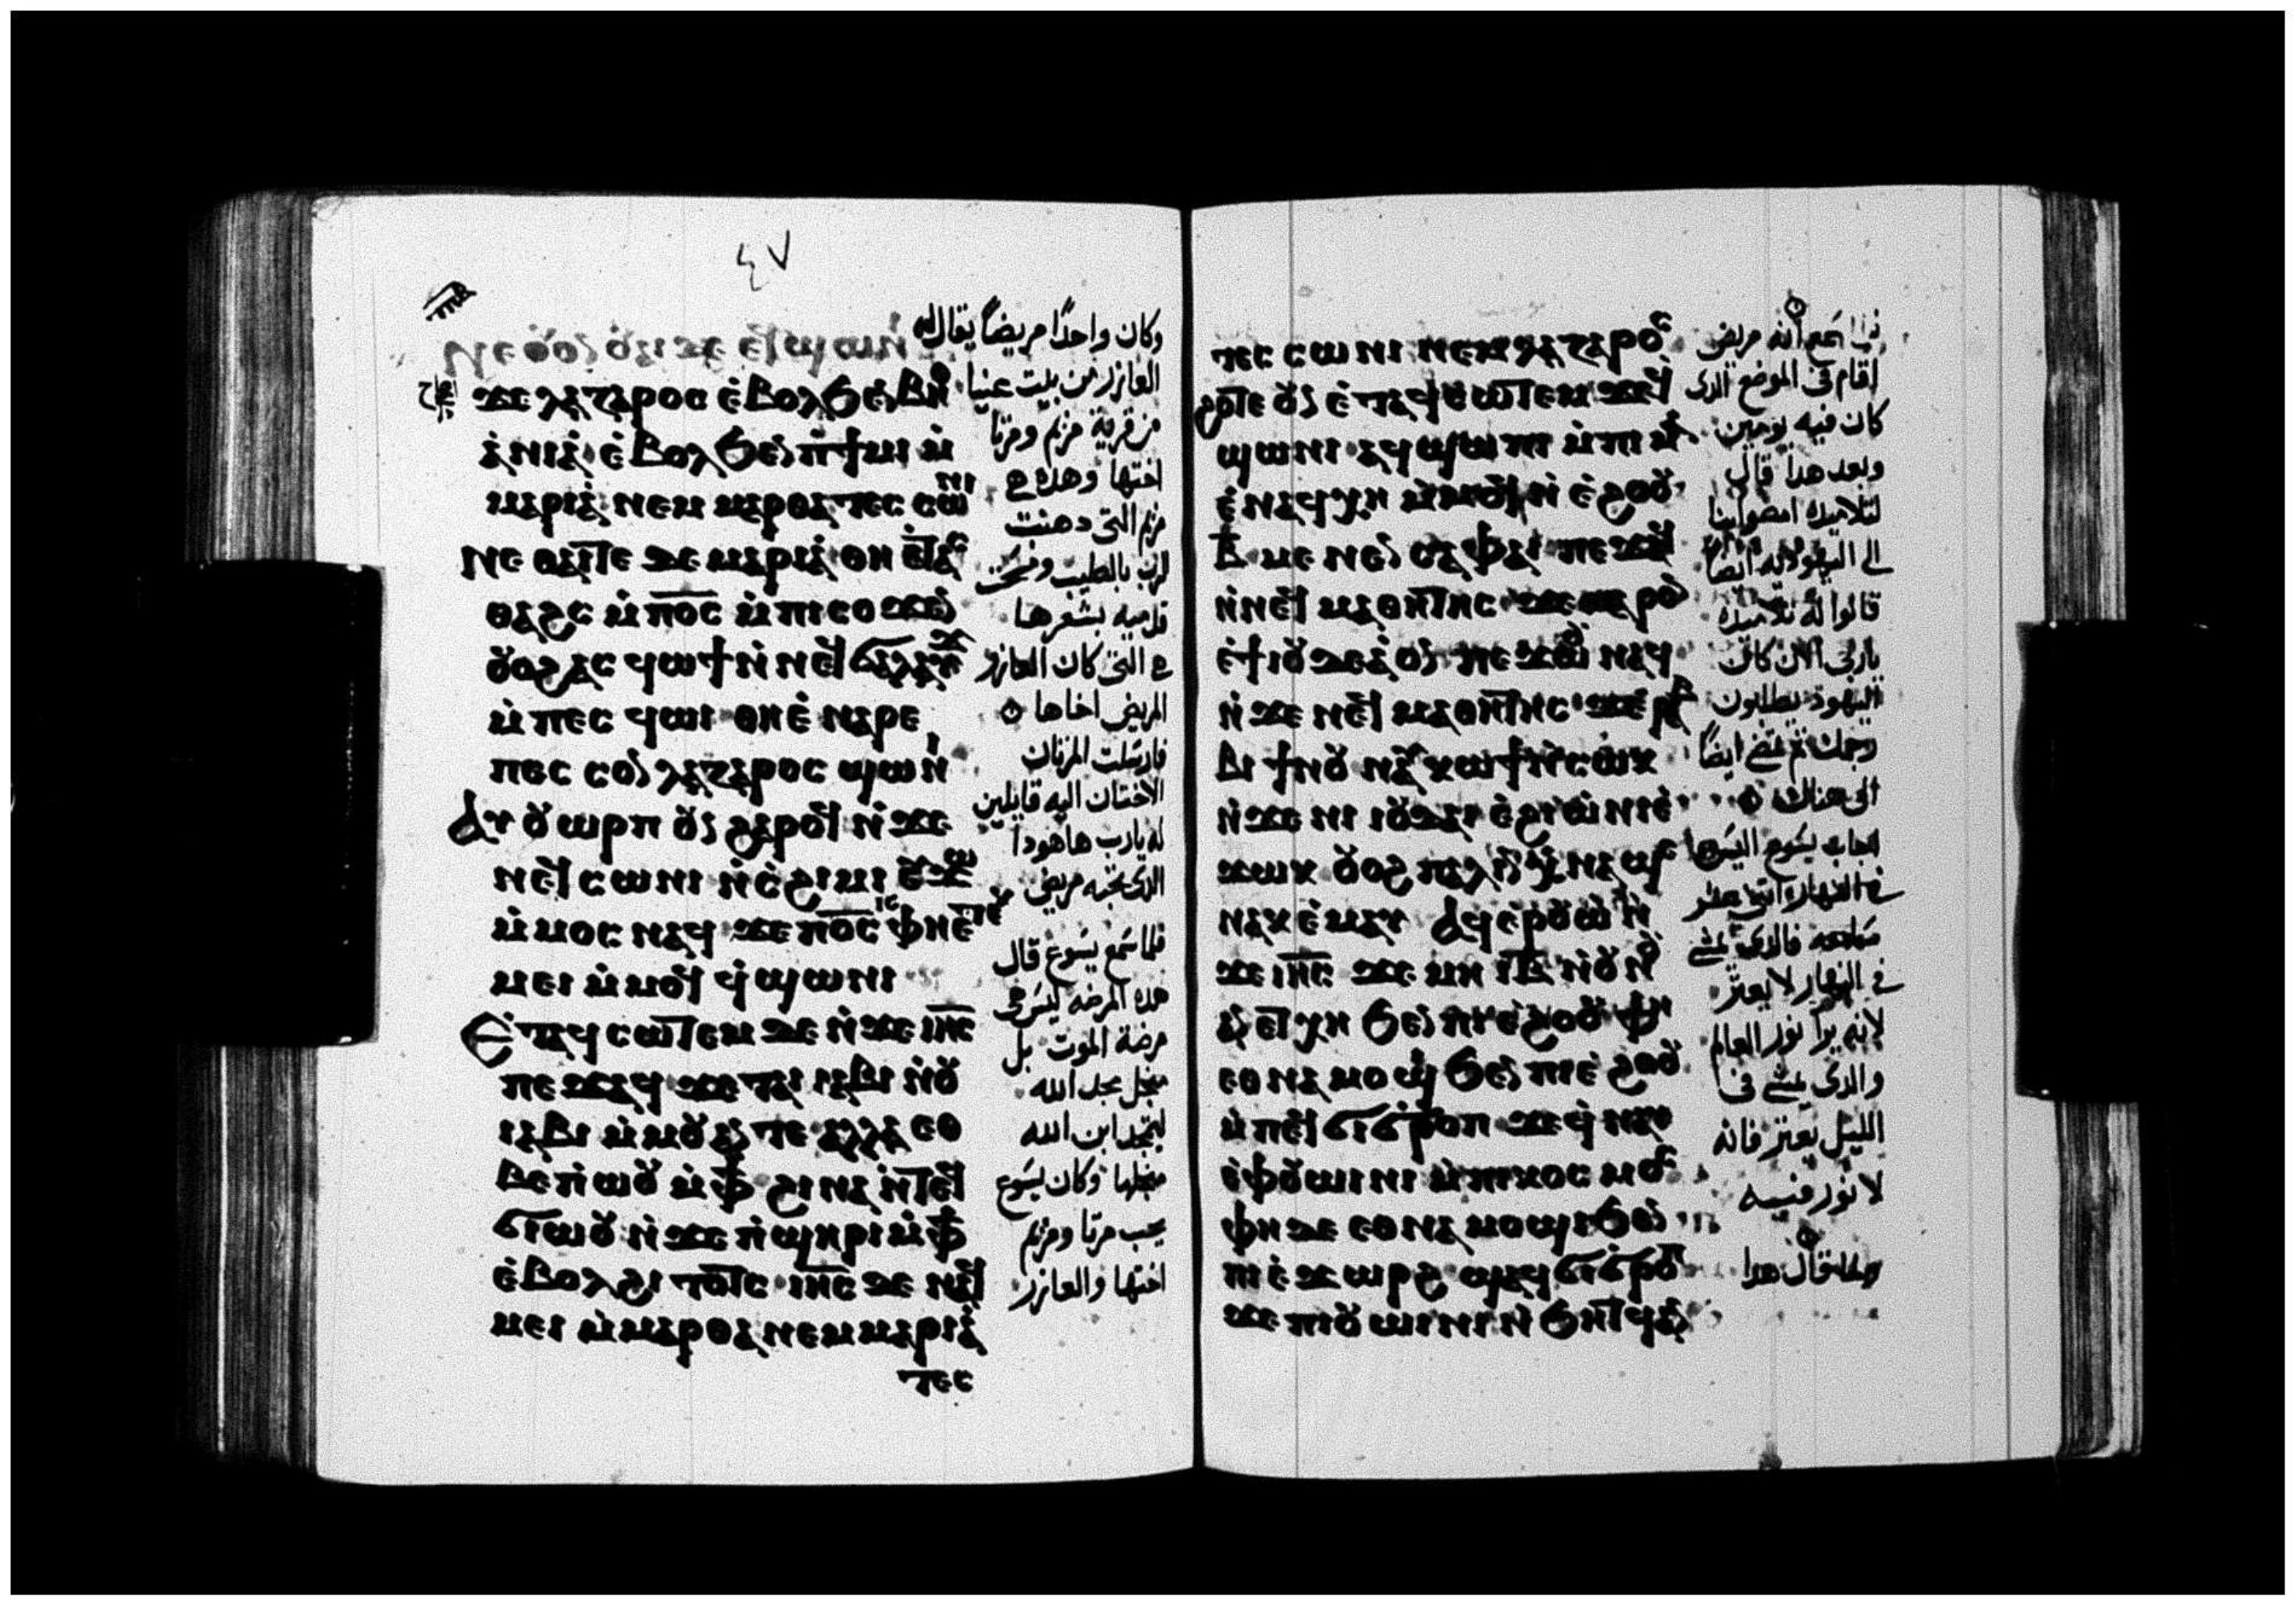 ٤٧
ⲛⲉ ⲟⲩⲟⲛ ⲟⲩⲁⲓ ⲇⲉ ⲉϥϣⲱⲛⲓ
ϫⲉ ⲗⲁⲍⲁⲣⲟⲥ ⲉ̀ⲃⲟⲗϧⲉⲛ ⲃⲏ
ⲁ̀ⲛⲓⲁ̀ ⲉ̀ⲃⲟⲗϧⲉⲛ ⲡ̀ϯⲙⲓ ⲙ̀
ⲙⲁⲣⲓⲁ̀ ⲛⲉⲙ ⲙⲁⲣⲑⲁ ⲧⲉⲥ ⲥⲱⲛⲓ
ⲛⲉ ⲑⲁⲓⲧⲉ ϫⲉ ⲙⲁⲣⲓⲁ̀ ⲑⲏ ⲉ̀ⲧⲁⲥ
ⲑⲁϩⲥ ⲙ̀ⲡⲟ̅ⲥ̅ ⲙ̀ⲡⲓⲥⲟϫⲉⲛ
ⲟⲩⲟϩ ⲁⲥ ϥⲱϯ ⲛ̀ⲛⲉϥϭⲁⲗⲁⲩϫ
ⲙ̀ⲡⲉⲥ ϥⲱⲓ ⲑⲏ ⲉ̀ⲛⲁⲣⲉ
ⲡⲉⲥ ⲥⲟⲛ ⲗⲁⲍⲁⲣⲟⲥ ϣⲱⲛⲓ
Ⲁⲩ ⲟⲩⲱⲣⲡ ⲟⲩⲛ ϩⲁⲣⲟϥ ⲛ̀ϫⲉ
ⲛⲉϥ ⲥⲱⲛⲓ ⲛ̀ϩⲓⲟⲙⲓ ⲉⲩϫⲱ
ⲙ̀ⲙⲟⲥ ⲛⲁϥ ϫⲉ ⲡⲟ̅ⲥ̅ ⲓⲥ ⲫⲏ ⲉ̀ⲧⲉⲕ
ⲙⲉⲓ ⲙ̀ⲙⲟϥ ϥ̀ϣⲱⲛⲓ
Ⲉ̀ⲧⲁϥ ⲥⲱⲧⲉⲙ ⲇⲉ ⲛ̀ϫⲉ ⲓⲏ̅ⲥ̅
ⲡⲉϫⲁϥ ϫⲉ ⲧⲁⲓ ⲓⲁⲃⲓ ⲛ̀ⲟⲩ
ⲓⲁⲃⲓ ⲙ̀ⲙⲟⲩ ⲁⲛ ⲧⲉ ⲁⲗⲗⲁ ⲉⲑ
ⲃⲉ ⲡ̀ⲱⲟⲩ ⲙ̀ⲫϯ ϩⲓⲛⲁ ⲛ̀ⲧⲉϥ
ϭⲓⲱⲟⲩ ⲛ̀ϫⲉ ⲡ̀ϣⲏⲣⲓ ⲙ̀ⲫϯ
ⲉ̀ⲃⲟⲗ ϩⲓ ⲧⲟⲧⲥ ⲓⲏ̅ⲥ̅ ⲇⲉ ⲛⲁϥ
ⲙⲉⲓ ⲙ̀ⲙⲁⲣⲑⲁ ⲛⲉⲙ ⲙⲁⲣⲓⲁ̀
ⲧⲉⲥ
وكان واحدًا مريضاً يقال له
العازر من بيت عنيا
من قرية مريم ومرتا
اختها وهذه هى
مريم التى دهنت
الرب بالطيب ومسحت
قدميه بشعرها
هى التى كان العازر
المريض اخاها
فارسلت المرتان
الاختان اليه قايلين
له يارب هاهوذا
الذى تحبه مريض
فلما سمع يسوع قال
هذه المرضه ليس هى
مرضة الموت بل
من اجل مجد الله
ليتمجد ابن الله
من اجلها وكان يسوع
يحب مرتا ومريم
اختها والعازر
ⲧⲉⲥ ⲥⲱⲛⲓ ⲛⲉⲙ ⲗⲁⲍⲁⲣⲟⲥ
ϩⲟⲧⲉ ⲟⲩⲛ ⲉ̀ⲧⲁϥⲥⲱⲧⲉⲙ ϫⲉ ϥ
ϣⲱⲛⲓ ⲁϥϣⲱⲡⲓ ⲙ̀ⲡⲓⲙⲁ
ⲉ̀ⲛⲁϥⲭⲏ ⲙ̀ⲙⲟϥ ⲛ̀ⲉ̀ϩⲟⲟⲩ
ⲃ̅ ⲙⲉⲛⲉⲛⲥⲁ ⲫⲁⲓ ⲡⲉϫⲁϥ
ⲛ̀ⲛⲉϥ ⲙⲁⲑⲏⲧⲏⲥ ϫⲉ ⲙⲁⲣⲟⲛ
ⲉ̀ϯⲓⲟⲩⲇⲉⲁ̀ ⲟⲛ ⲡⲉϫⲱⲟⲩ ⲛⲁϥ
ⲛ̀ϫⲉ ⲛⲉϥ ⲙⲁⲑⲏⲧⲏⲥ ϫⲉ ⲣⲁⲃ
ⲃⲓ ϯⲛⲟⲩ ⲛⲁⲩ ⲕⲱϯ ⲛ̀ⲥⲱⲕ
ⲛ̀ϫⲉ ⲛⲓ ⲓⲟⲩⲇⲁⲓ ⲉ̀ϩⲓⲱ̀ⲛⲓ ⲉ̀
ϫⲱⲕ ⲟⲩⲟϩ ⲡⲁⲗⲓⲛ ⲭ̀ⲛⲁϣⲉ
ⲛⲁⲕ ⲉ̀ⲙⲁⲩ Ⲁϥⲉⲣⲟⲩⲱ̀ ⲛ̀
ϫⲉ ⲓⲏ̅ⲥ̅ ϫⲉ ⲙⲏ ⲓⲃ̅ ⲛ̀ⲟⲩⲛⲟⲩ
ⲁⲛ ⲉⲧⲭⲏ ϧⲉⲛ ⲡⲓⲉ̀ϩⲟⲟⲩ ⲫⲏ
ⲉⲑⲛⲁⲙⲟϣⲓ ϧⲉⲛ ⲡⲓⲉ̀ϩⲟⲟⲩ
ⲙ̀ⲡⲉϥ ϭⲓϭⲣⲟⲡ ϫⲉ ϥ̀ⲛⲁⲩ
ⲉ̀ⲫⲟⲩⲱⲓⲛⲓ ⲙ̀ⲡⲓⲕⲟⲥⲙⲟⲥ
ⲫⲏ ⲇⲉ ⲉⲑⲛⲁⲙⲟϣⲓ ϧⲉⲛ
ⲡⲓⲉ̀ϫⲱⲣϩ ϣⲁϥϭⲓϭⲣⲟⲡ
ϫⲉ ⲡⲓⲟⲩⲱⲓⲛⲓ ⲛ̀ϧⲏⲧϥ ⲁⲛ
سمع أنه مريض
اقام فى الموضع الذى
كان فيه يومين
وبعد هذا قال
لتلاميذه امضوا بنا
الى اليهوديه ايضاً
قالوا له تلاميذه
يا ربى الان كان
اليهود يطلبون
رجمك ثم تمضى ايضاً
الى هناك
اجاب يسوع اليس
فى النهار اثنى عشر
ساعه فالذى يمشى
فى النهار لا يعثر
لانه يرا نور العالم
والذى يمشى فى
الليل يعثر فانه
لا نور فيه
ولما قال هذا